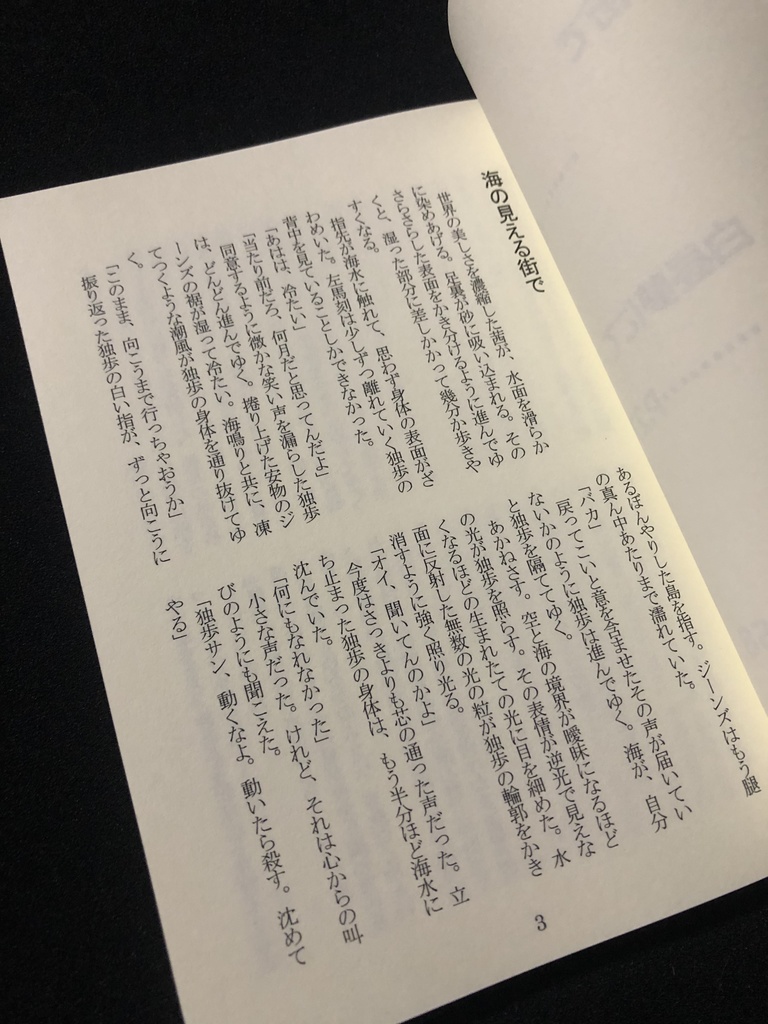 海の見える街で
世界の美しさを濃縮した茜が、水面を滑らか
に染めあげる。足裏が砂に吸い込まれる。その
さらさらした表面をかき分けるように進んでゆ
くと、湿った部分に差しかかって幾分か歩きや
すくなる。
指先が海水に触れて、思わず身体の表面がざ
わめいた。左馬刻は少しずつ離れていく独歩の
背中を見ていることしかできなかった。
「あはは、冷たい」
「当たり前だろ、何月だと思ってんだよ」
同意するように微かな笑い声を漏らした独歩
は、どんどん進んでゆく。捲り上げた安物のジ
ーンズの裾が湿って冷たい。海鳴りと共に、凍
てつくような潮風が独歩の身体を通り抜けてゆ
く。
「このまま、向こうまで行っちゃおうか」
振り返った独歩の白い指が、ずっと向こうに
あるぼんやりした島を指す。ジーンズはもう腿
の真ん中あたりまで濡れていた。
「バカ」
戻ってこいと意を含ませたその声が届いてい
ないかのように独歩は進んでゆく。海が、自分
と独歩を隔ててゆく。
あかねさす。空と海の境界が曖昧になるほど
の光が独歩を照らす。その表情が逆光で見えな
くなるほどの生まれたての光に目を細めた。水
面に反射した無数の光の粒が独歩の輪郭をかき
消すように強く照り光る。
「オイ、聞いてんのかよ」
今度はさっきよりも芯の通った声だった。立
ち止まった独歩の身体は、もう半分ほど海水に
沈んでいた。
「何にもなれなかった」
小さな声だった。けれど、それは心からの叫
びのようにも聞こえた。
「独歩サン、動くなよ。動いたら殺す。沈めて
やる」
3